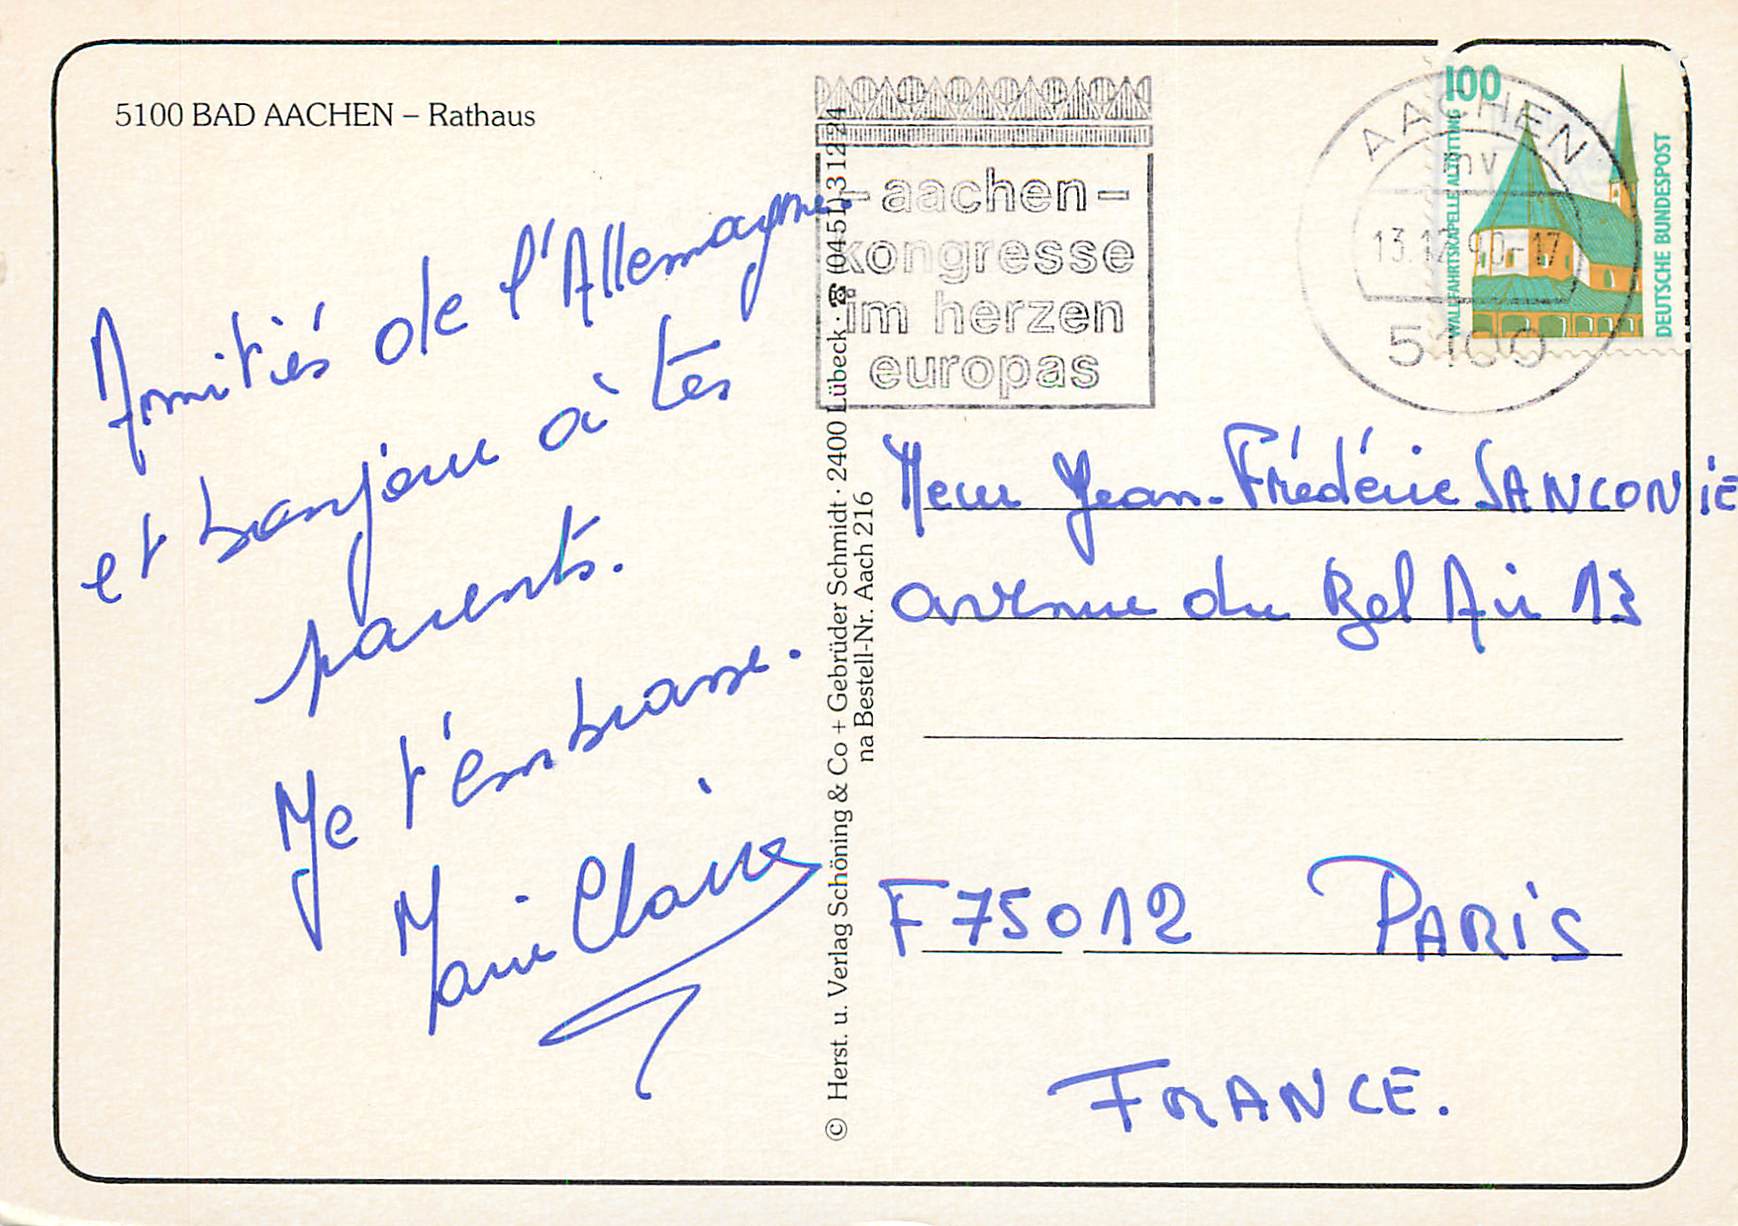 5100 BAD AACHEN – Rathaus
Amitiés de l'Allemagne.
et bonjour à tes
parents.
Je t'embrasse.
Marie Claire
© Herst. u. Verlag Schöning & Co + Gebrüder Schmidt · 2400 Lübeck · ☎ (0451) 31224
na Bestell-Nr. Aach 216
– aachen –
kongresse
im herzen
europas
AACHEN
mv
13.12.90-17
5100
100
WALLFAHRTSKAPELLE ALTÖTTING
DEUTSCHE BUNDESPOST
Jean-Frédéric SANCONIE
avenue du Bel Air 13
F 75012 PARIS
FRANCE.